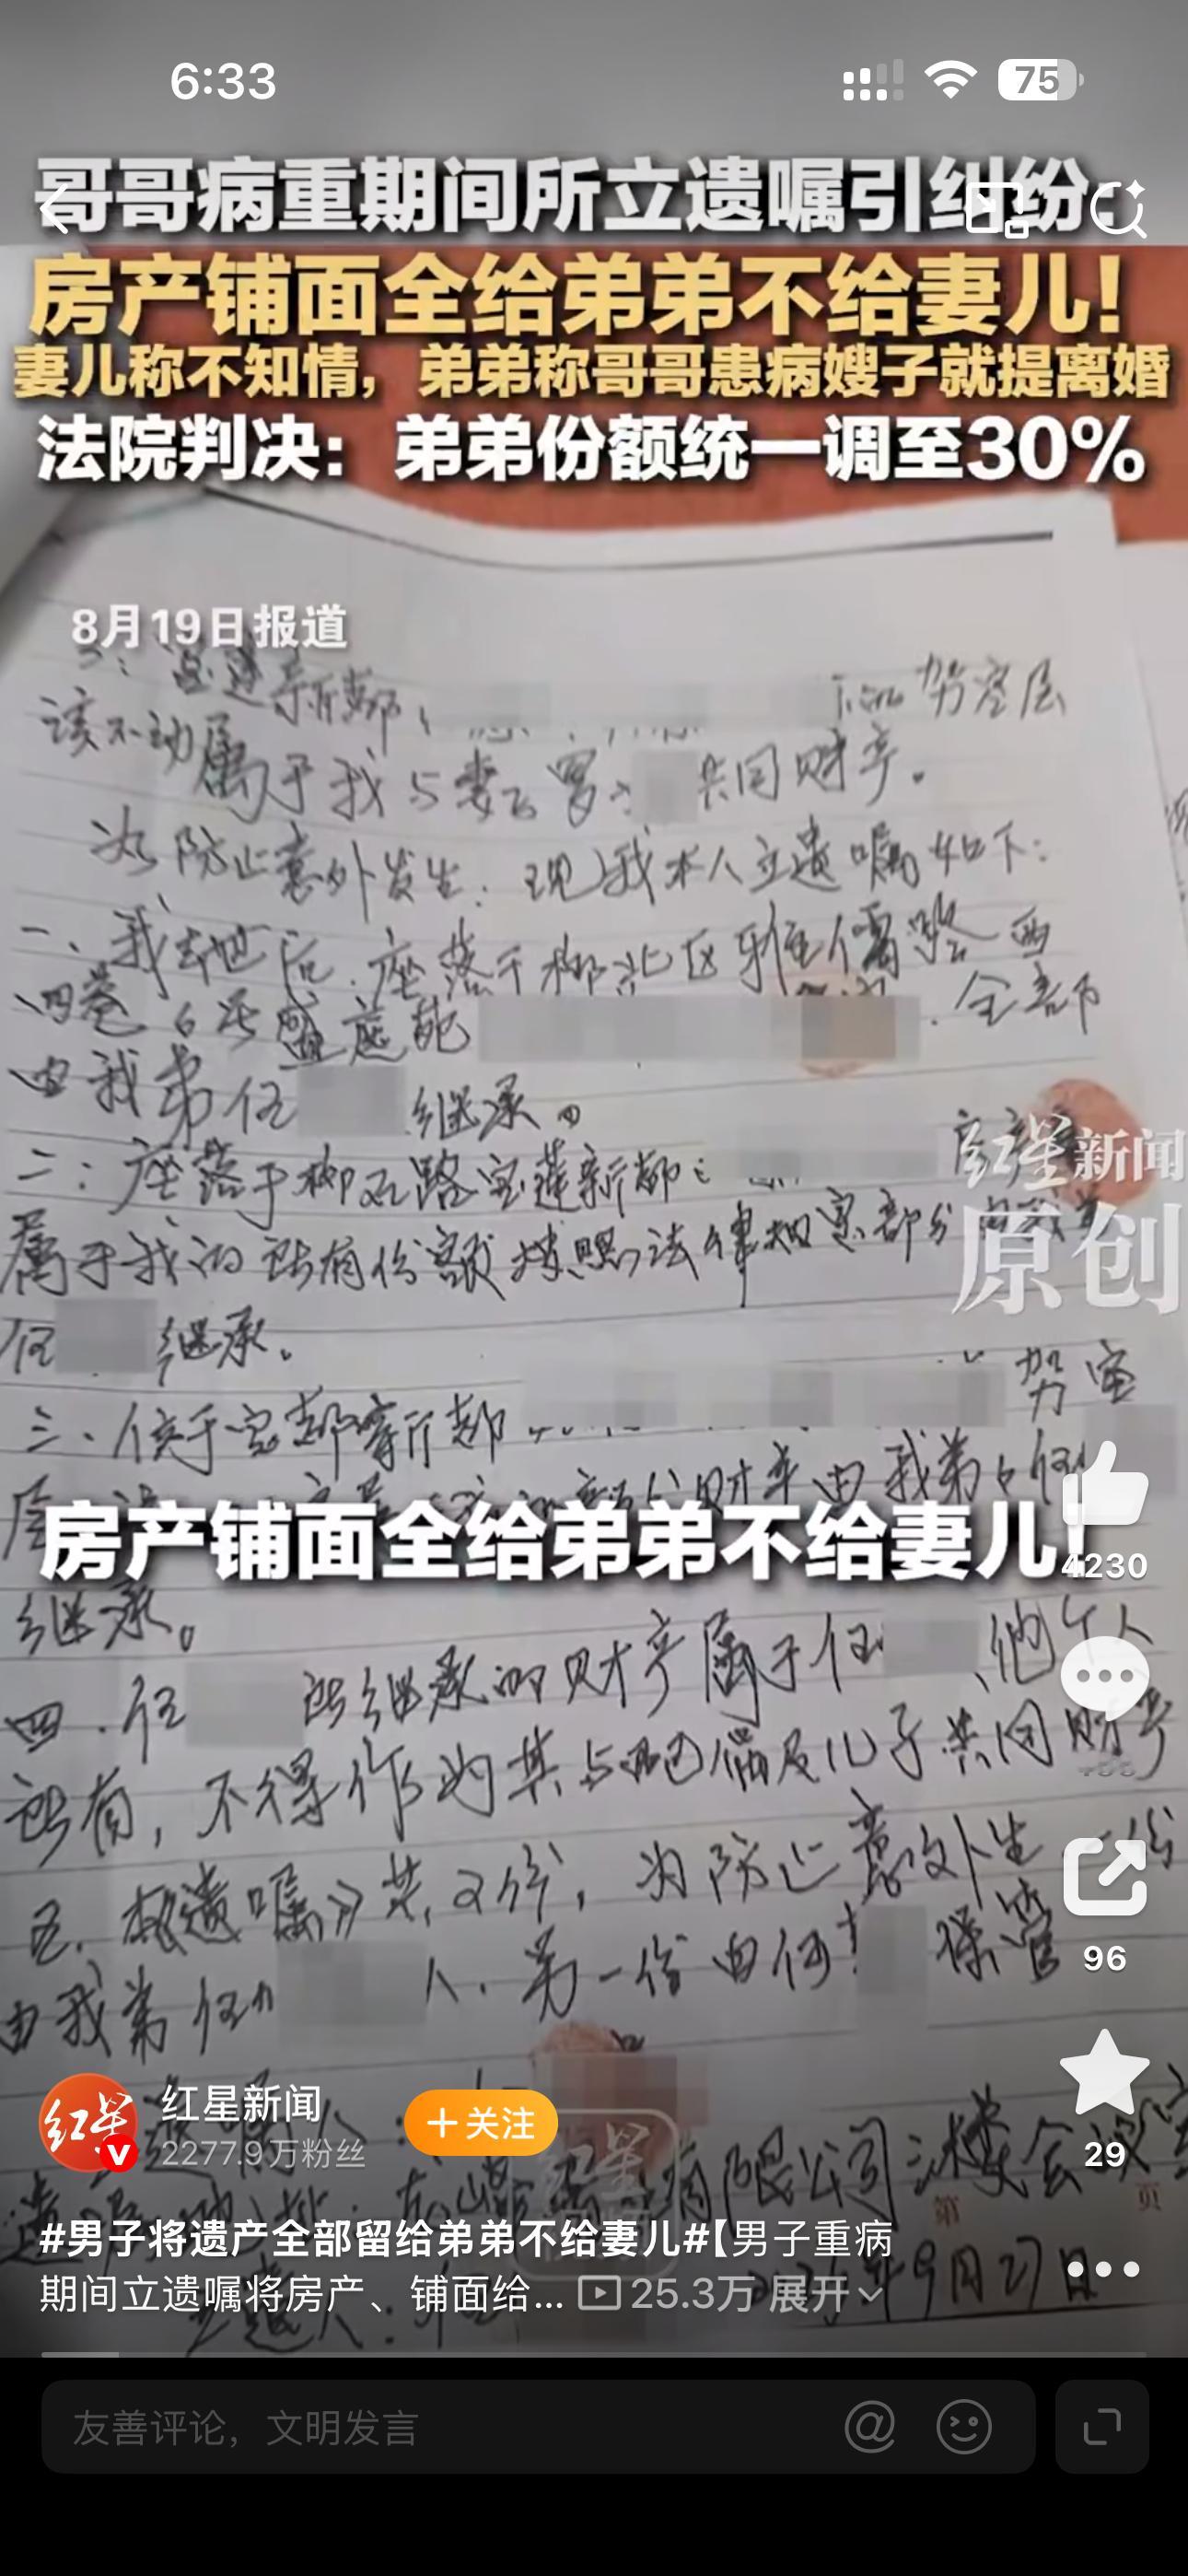 6:33
75
哥哥病重期间所立遗嘱引纠纷
房产铺面全给弟弟不给妻儿！
妻儿称不知情，弟弟称哥哥患病嫂子就提离婚
法院判决：弟弟份额统一调至30%
8月19日报道
该不动属于我与妻子罗 共同财产。
为防止意外发生，现我本人立遗嘱如下：
一、我去世后，座落于柳北区雅儒路西
四巷6号 全部
由我弟伍 继承。
二：座落于柳石路宝莲新都
红星新闻
原创
属于我的所有份额按照法律规定部分由我弟
伍 继承。
三、位于宝莲新都
由我弟伍
房产铺面全给弟弟不给妻儿！
继承。
4230
四、伍 所继承的财产属于伍 他个人
所有，不得作为其与配偶及儿子共同财产
五、本《遗嘱》共2份，为防止意外生 一份
由我弟伍 另一份由伍 保管
96
红星
红星新闻
2277.9万粉丝
+关注
29
有限公司三楼会议室
第 页
9月27日
#男子将遗产全部留给弟弟不给妻儿#【男子重病
期间立遗嘱将房产、铺面给... 25.3万 展开
友善评论，文明发言